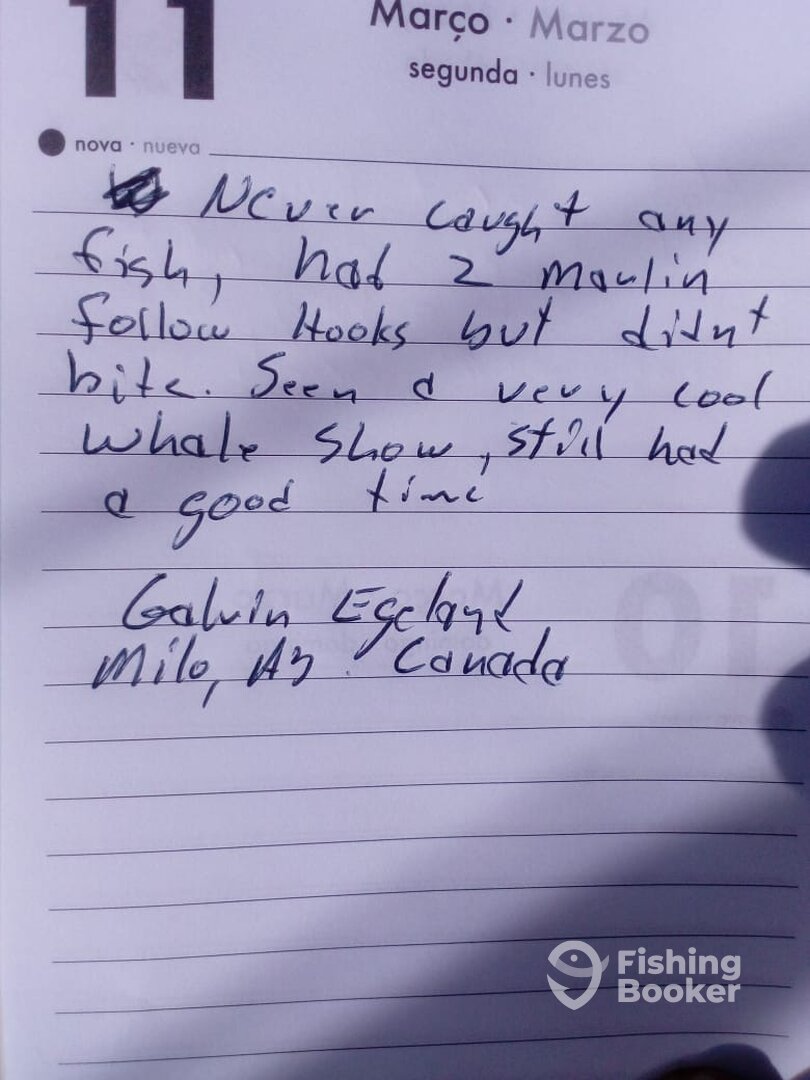 11
Março · Marzo
segunda · lunes
nova · nueva
Never caught any
fish, had 2 maulin
follow Hooks but didnt
bite. Seen a very cool
whale show, still had
a good time
Galvin Egeland
Milo, AB. Canada
10
Fishing
Booker